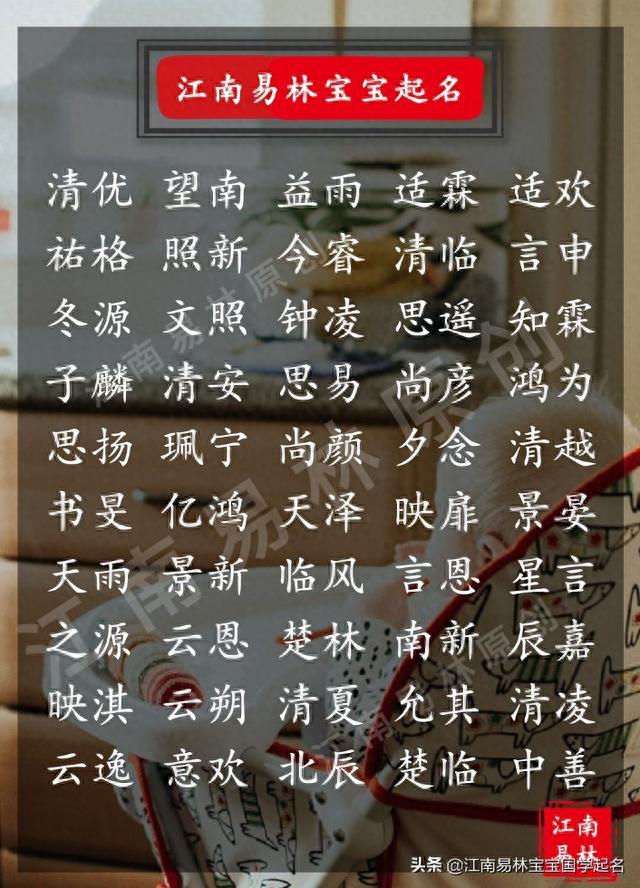 江南易林宝宝起名
清优 望南 益雨 适霖 适欢
祐格 照新 今睿 清临 言申
冬源 文照 钟凌 思遥 知霖
子麟 清安 思易 尚彦 鸿为
思扬 珮宁 尚颜 夕念 清越
书旻 亿鸿 天泽 映扉 景晏
天雨 景新 临风 言恩 星言
之源 云恩 楚林 南新 辰嘉
映淇 云朔 清夏 允其 清凌
云逸 意欢 北辰 楚临 中善
江南易林原创
江南易林原创
江南易林原创
江南
易林
头条 @江南易林宝宝国学起名